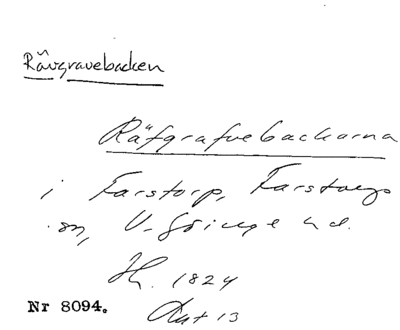 Rävgravebacken
Räfgrafvebackarna
i Farstorp, Farstorps
sn, V. Göinge hd.
1824
Nr 8094.